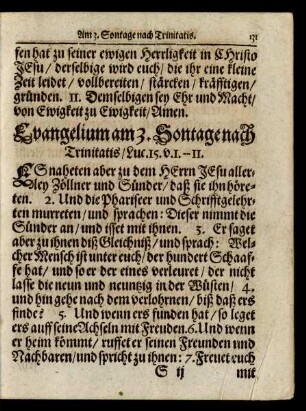 Am 3. Sontage nach Trinitatis. 131
fen hat zu seiner ewigen Herrligkeit in CHristo
JEsu / derselbige wird euch / die ihr eine kleine
Zeit leidet / vollbereiten / stärcken / kräfftigen /
gründen. 11. Demselbigen sey Ehr und Macht /
von Ewigkeit zu Ewigkeit / Amen.
Evangelium am 3. Sontage nach
Trinitatis / Luc. 15. v. 1. – 11.
ES naheten aber zu dem HErrn JEsu aller-
ley Zöllner und Sünder / daß sie ihn höre-
ten. 2. Und die Phariseer und Schrifftgelehr-
ten murreten / und sprachen: Dieser nimmt die
Sünder an / und isset mit ihnen. 3. Er saget
aber zu ihnen diß Gleichniß / und sprach: Wel-
cher Mensch ist unter euch / der hundert Schaaf-
fe hat / und so er der eines verleuret / der nicht
lasse die neun und neuntzig in der Wüsten / 4.
und hin gehe nach dem verlohrnen / biß daß ers
finde? 5. Und wenn ers funden hat / so leget
ers auff seine Achseln mit Freuden. 6. Und wenn
er heim kömmt / ruffet er seinen Freunden und
Nachbaren / und spricht zu ihnen: 7. Freuet euch
S ij mit